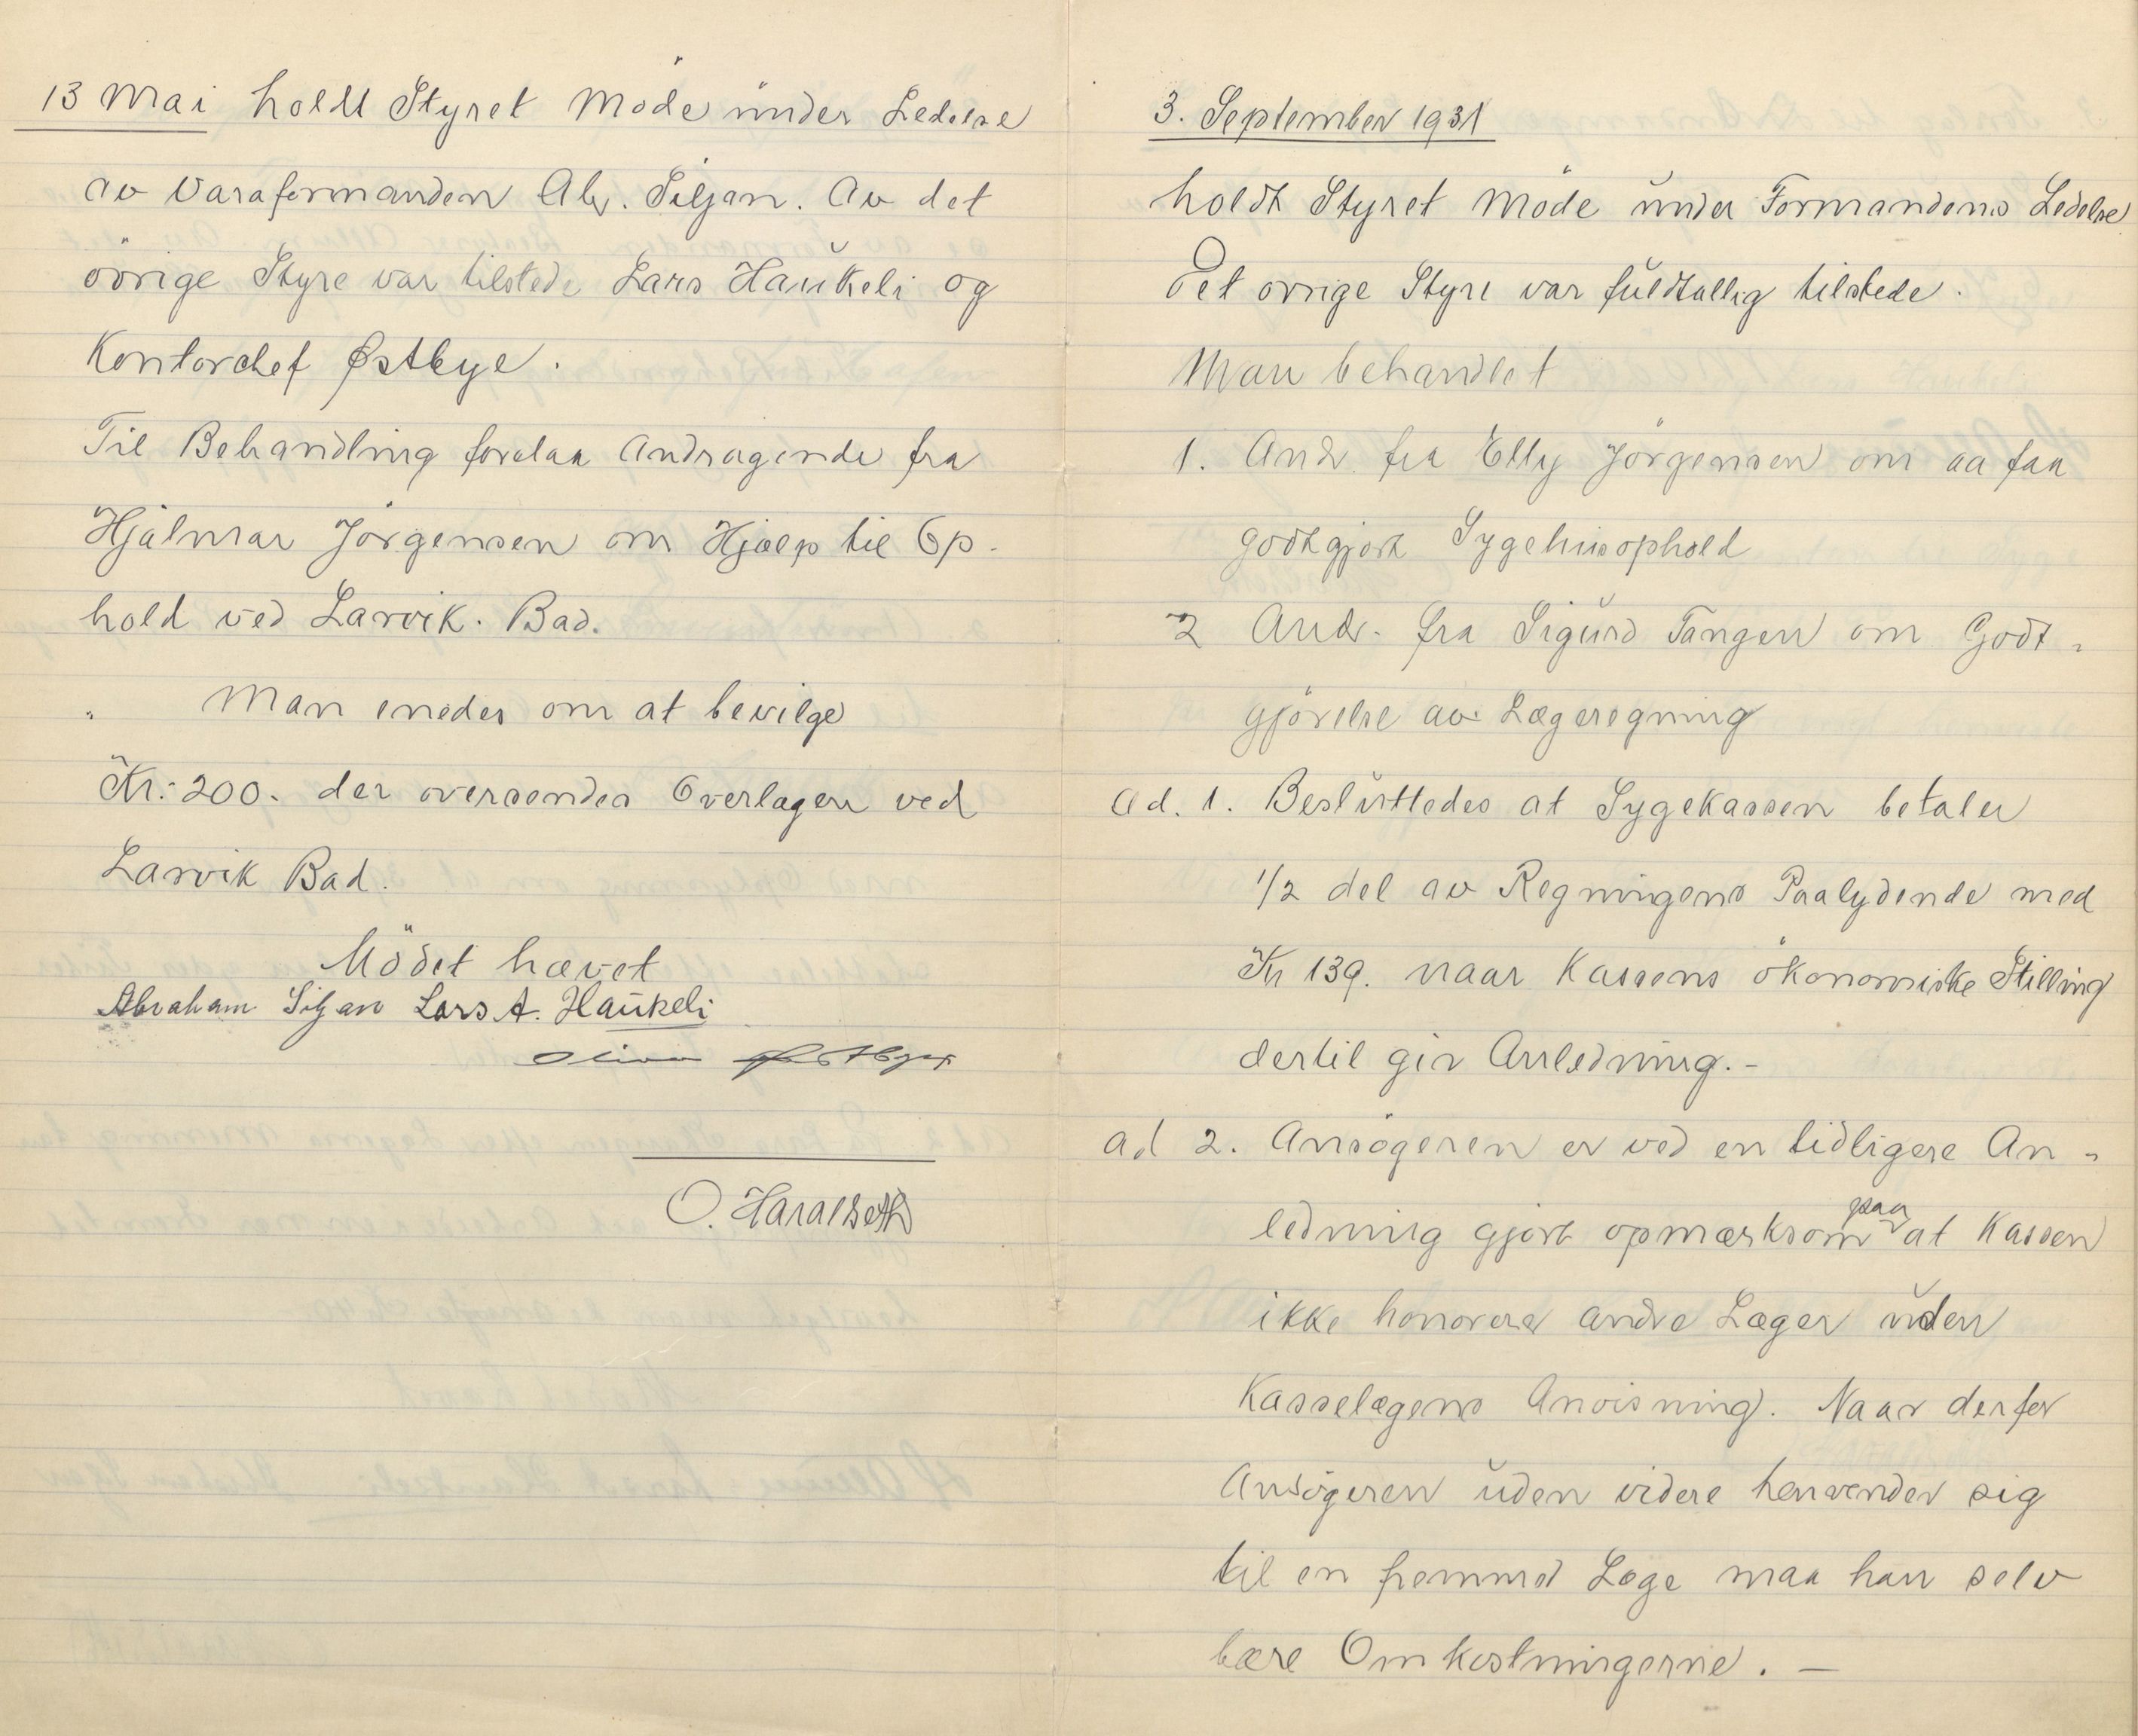 13 Mai holdt Styret Möde under Ledelse
av Varaformanden Abr. Siljan. Av det
övrige Styre var tilstede Lars Haukeli og
Kontorchef Østbye.
Til Behandling forelaa Andragende fra
Hjalmar Jörgensen om Hjælp til Op-
hold ved Larvik. Bad.
Man enedes om at bevilge
Kr: 200. der oversendes Overlægen ved
Larvik Bad.
Mödet hævet
Abraham Siljan Lars A. Haukeli
Østbye
O. Haraldseth
3. September 1931
holdt Styret Möde under Formandens Ledelse
Det övrige Styre var fuldtallig tilstede.
Man behandlet
1. Andr. fra Elly Jörgensen om aa faa
godtgjort Sygehusophold
2 Andr. fra Sigurd Tangen om Godt-
gjörelse av Lægeregning
Ad. 1. Besluttedes at Sygekassen betaler
1/2 del av Regningens Paalydende med
Kr 139. naar Kassens ökonomiske Stilling
dertil gir Anledning.-
ad 2. Ansögeren er ved en tidligere An-
ledning gjort opmærksom paa at Kassen
ikke honorerer andre Læger uden
Kasselægens Anvisning. Naar derfor
Ansögeren uden videre henvender sig
til en fremmed Læge maa han selv
bære Omkostningerne. —